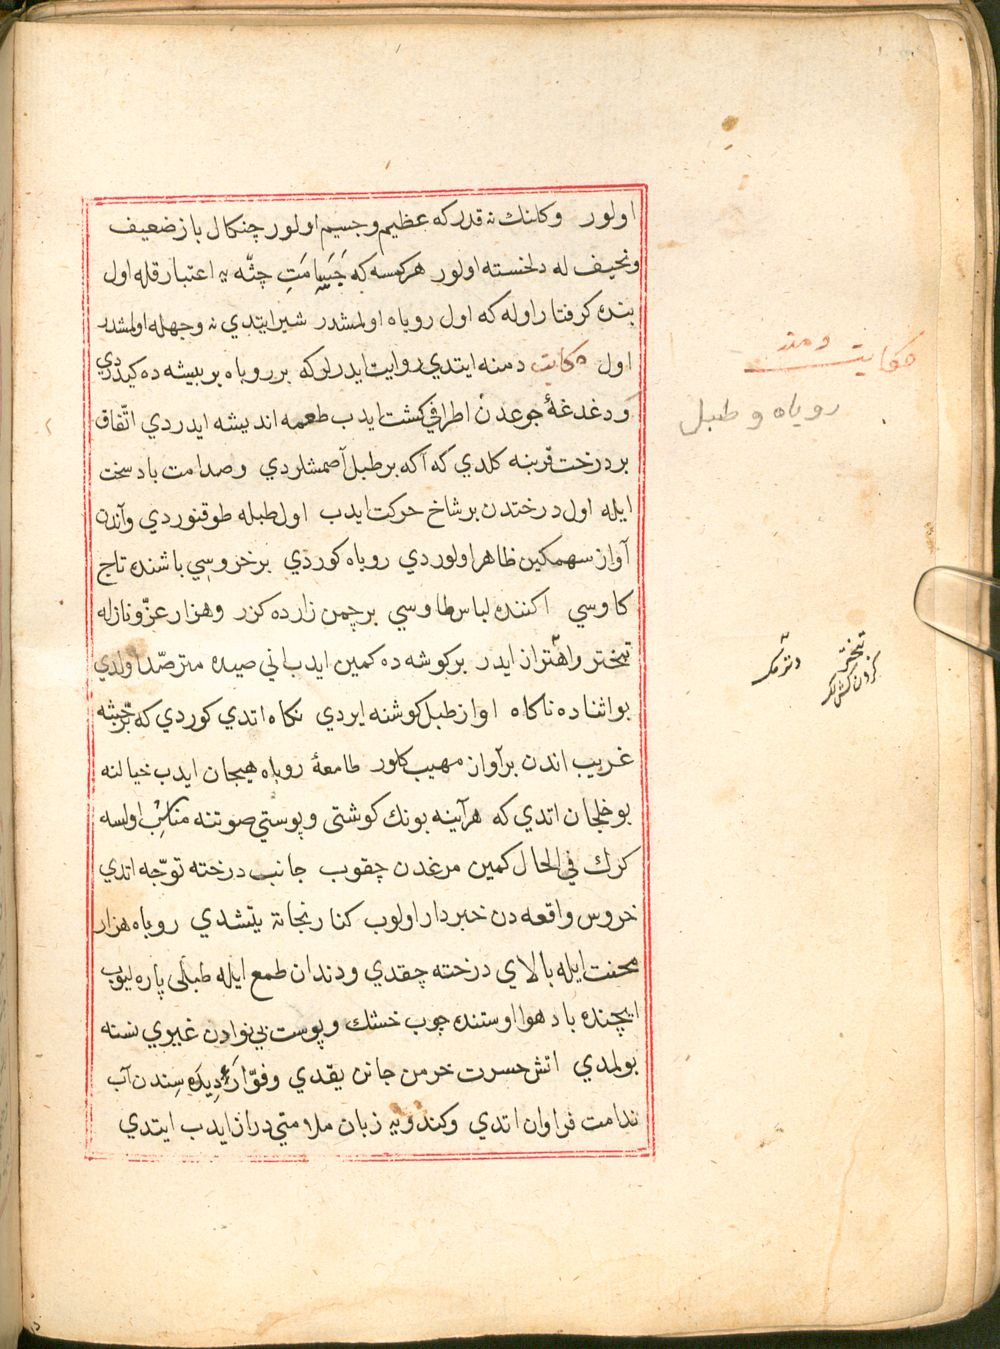 اولور وكلنك نه قدر كه عظيم وجسيم اولور چنكال باز ضعيف
ونحيف له دلخسته اولور هر كمسه كه جَسامَتِ جثّه يه اعتبار قله اول
بنده كرفتار اوله كه اول روباه اولمشدر شير ايتدي نه وجهله اولمشدر
اول حكايت دمنه ايتدي روايت ايدرلر كه بر روباه بر بيشه ده كيدردي
ودغدغهٔ جوعدن اطرافي كشت ايدب طعمه انديشه ايدردي اتّفاق
بر درخت قربنه كلدي كه آكه بر طبل آصمشلردي وصدامت باد سخت
ايله اول درختدن بر شاخ حركت ايدب اول طبله طوقنوردي وآندن
آواز سهمكين ظاهر اولوردي روباه كوردي بر خروسي باشنده تاج
كاوسي اكننده لباس طاوسي بر چمن زارده كزر وهزار عزّ ونازله
تبختر واهتزاز ايدر بر كوشه ده كمين ايدب اني صيده مترصّد اولدي
بو اثناده ناكاه اواز طبل كوشنه ايردي نكاه اتدي كوردي كه بر جثّه
غريب اندن بر آواز مهيب كلور طامعهٔ روباه هيجان ايدب خيالنه
بو خلجان اتدي كه هر آينه بونك كوشتى وپوستي صوتنه مناسب اولسه
كرك في الحال كمين مرغدن چقوب جانب درخته توجّه اتدي
خروس واقعه دن خبردار اولوب كنار نجاته يتشدي روباه هزار
محنت ايله بالاي درخته چقدي ودندان طمع ايله طبلى پاره ليوب
ايچنده باد هوا اوستنده چوب خشك وپوست بي نوادن غيري نسنه
بولمدي اتش حسرت خرمن جانن يقدي وفوّارهٔ ديده سِندن آب
ندامت فراوان اتدي وكندويه زبان ملامتي دراز ايدب ايتدي
حكايت دمنه
روباه و طبل
تبختر